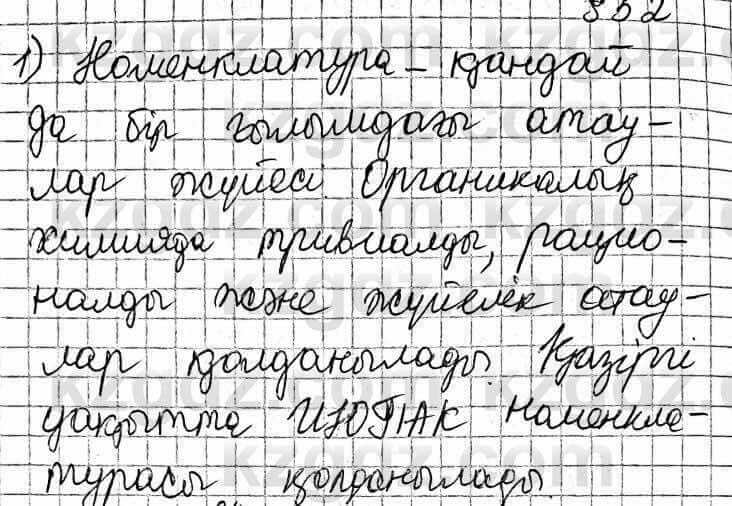 §52
1) Номенклатура – қандай
да бір ғылымдағы атау-
лар жүйесі. Органикалық
химияда тривиалды, рацио-
налды және жүйелік атау-
лар қолданылады. Қазіргі
уақытта ИЮПАК номенкла-
турасы қолданылады.